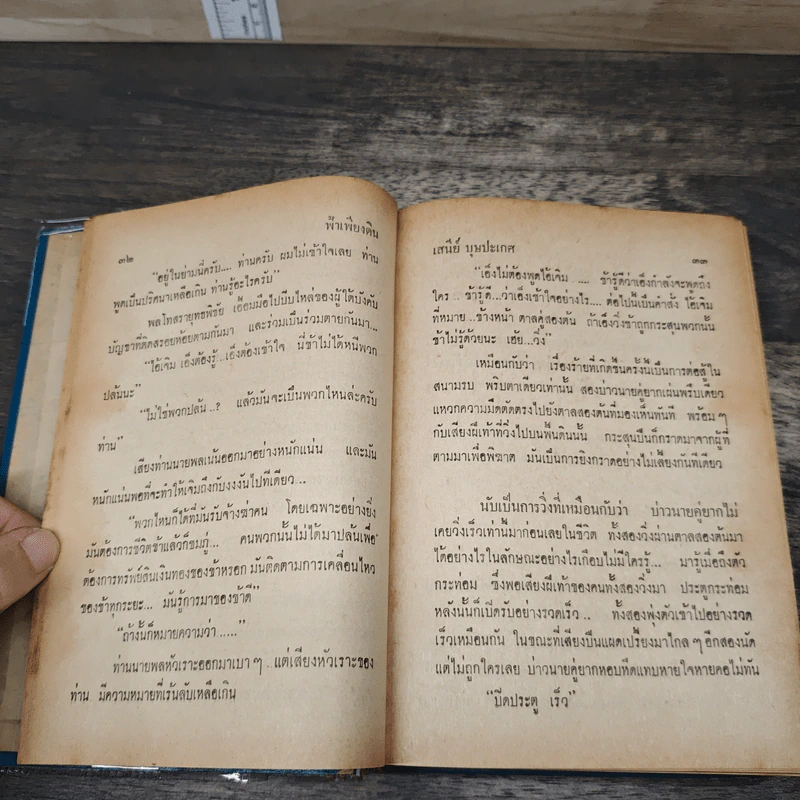 ฟ้าเพียงดิน
๓๒
"อยู่ในย่ามนี่ครับ.... ท่านครับ ผมไม่เข้าใจเลย ท่าน
พูดเป็นปริศนาเหลือเกิน ท่านรู้อะไรครับ"
พลโทสรายุทธพิชัย เอื้อมมือไปบีบไหล่ของผู้ใต้บังคับ
บัญชาที่ติดสรอยห้อยตามกันมา และร่วมเป็นร่วมตายกันมา...
"ไอ้เจิม เอ็งต้องรู้...เอ็งต้องเข้าใจ นี่ข้าไม่ได้หนีพวก
ปล้นนะ"
"ไม่ใช่พวกปล้น ..? แล้วมันจะเป็นพวกไหนล่ะครับ
ท่าน"
เสียงท่านนายพลเน้นออกมาอย่างหนักแน่น และมัน
หนักแน่นพอที่จะทำให้เจิมถึงกับงงงันไปทีเดียว...
"พวกไหนก็ได้ที่มันรับจ้างฆ่าคน โดยเฉพาะอย่างยิ่ง
มันต้องการชีวิตข้าแล้วก็ชมภู่... คนพวกนั้นไม่ได้มาปล้นเพื่อ
ต้องการทรัพย์สินเงินทองของข้าหรอก มันติดตามการเคลื่อนไหว
ของข้าทุกระยะ... มันรู้การมาของข้าดี"
"ถ้างั้นก็หมายความว่า ....."
ท่านนายพลหัวเราะออกมาเบา ๆ ..แต่เสียงหัวเราะของ
ท่าน มีความหมายที่เร้นลับเหลือเกิน
เสนีย์ บุษปะเกศ
๓๓
"เอ็งไม่ต้องพูดไอ้เจิม .... ข้ารู้ดีว่าเอ็งกำลังจะพูดถึง
ใคร .. ข้ารู้ดี...ว่าเอ็งเข้าใจอย่างไร.... ต่อไปนี้เป็นคำสั่ง ไอ้เจิม
ที่หมาย ..ข้างหน้า ตาลคู่สองต้น ถ้าเอ็งวิ่งข้าถูกกระสุนพวกนั้น
ข้าไม่รู้ด้วยนะ เฮ้ย...วิ่ง"
เหมือนกับว่า เรื่องร้ายที่เกิดขึ้นครั้งนี้เป็นการต่อสู้ใน
สนามรบ พริบตาเดียวเท่านั้น สองบ่าวนายคู่ยากเผ่นพรึบเดียว
แหวกความมืดตัดตรงไปยังตาลสองต้นที่มองเห็นทันที พร้อม ๆ
กับเสียงฝีเท้าที่วิ่งไปบนพื้นดินนั้น กระสุนปืนก็กราดมาจากผู้ที่
ตามมาเพื่อพิฆาต มันเป็นการยิงกราดอย่างไม่เลี้ยงกันทีเดียว
นับเป็นการวิ่งที่เหมือนกับว่า บ่าวนายคู่ยากไม่
เคยวิ่งเร็วเท่านี้มาก่อนเลยในชีวิต ทั้งสองวิ่งผ่านตาลสองต้นมา
ได้อย่างไรในลักษณะอย่างไรเกือบไม่มีใครรู้... มารู้เมื่อถึงตัว
กระท่อม ซึ่งพอเสียงฝีเท้าของคนทั้งสองวิ่งมา ประตูกระท่อม
หลังนั้นก็เปิดรับอย่างรวดเร็ว .. ทั้งสองพุ่งตัวเข้าไปอย่างรวด
เร็วเหมือนกัน ในขณะที่เสียงปืนแผดเปรี้ยงมาไกล ๆ อีกสองนัด
แต่ไม่ถูกใครเลย บ่าวนายคู่ยากหอบหืดแทบหายใจหายคอไม่ทัน
"ปิดประตู เร็ว"